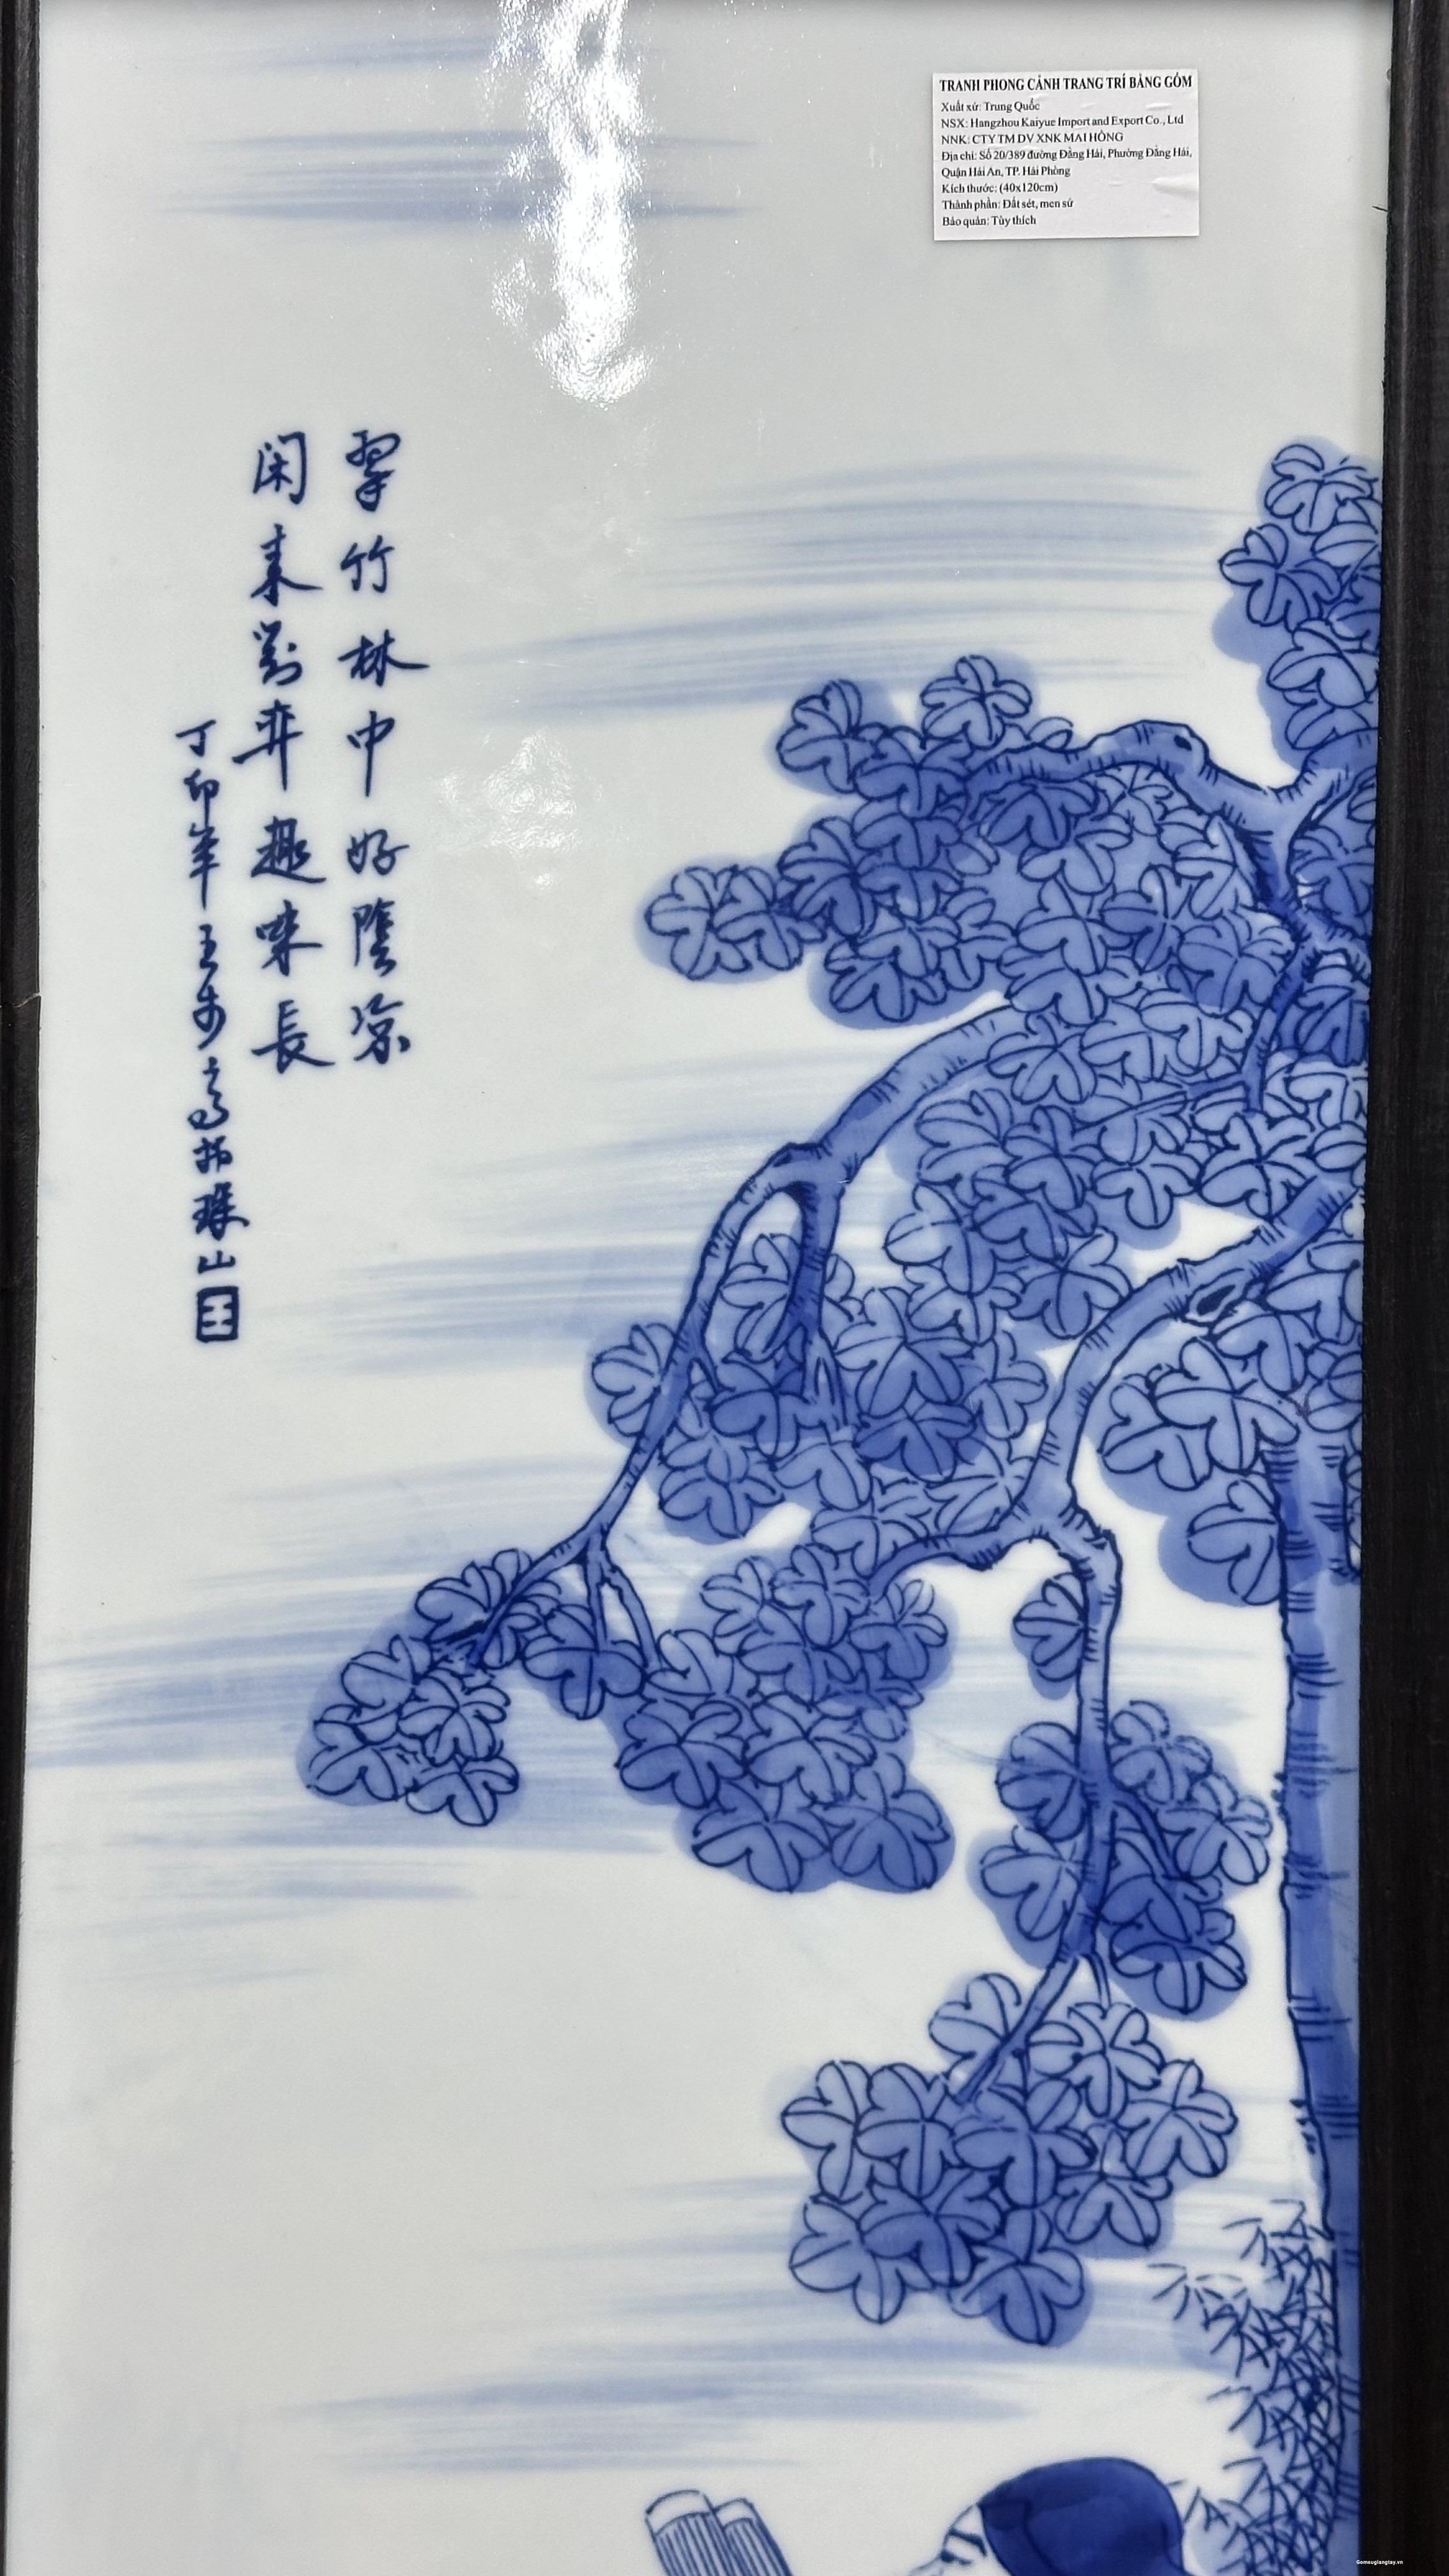 TRANH PHONG CẢNH TRANG TRÍ BẰNG GỐM
Xuất xứ: Trung Quốc
NSX: Hangzhou Kaiyue Import and Export Co., Ltd
NNK: CTY TM DV XNK MAI HỒNG
Địa chỉ: Số 20/389 đường Đằng Hải, Phường Đằng Hải,
Quận Hải An, TP. Hải Phòng
Kích thước: (40x120cm)
Thành phần: Đất sét, men sứ
Bảo quản: Tùy thích
翠竹林中好陰凉
闲来對弈趣味長
丁卯年王步寫於珠山
王
Gomsuglangtay.vn